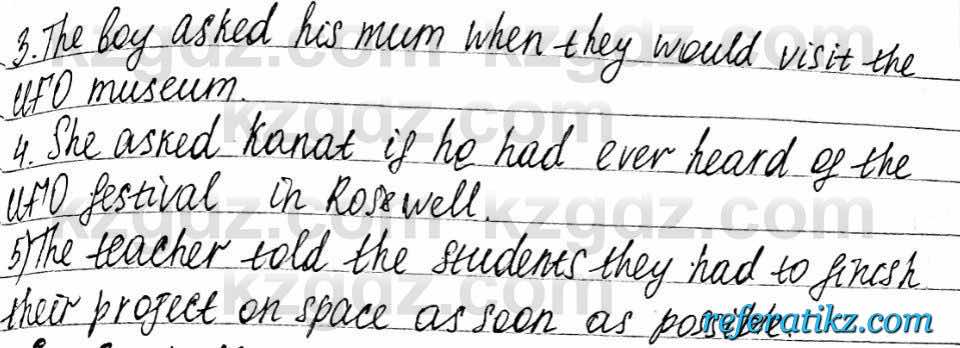 3. The boy asked his mum when they would visit the
UFO museum.
4. She asked Kanat if he had ever heard of the
UFO festival in Roswell.
5) The teacher told the students they had to finish
their project on space as soon as possible.
kzgdz.com
referatikz.com